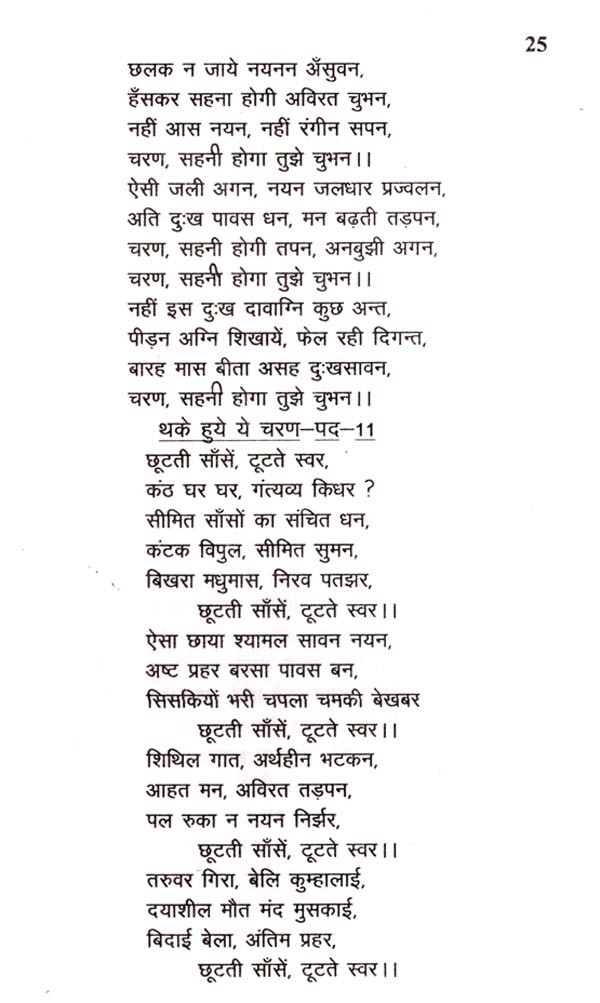 25
छलक न जाये नयनन अँसुवन,
हँसकर सहना होगी अविरत चुभन,
नहीं आस नयन, नहीं रंगीन सपन,
चरण, सहनी होगा तुझे चुभन।।
ऐसी जली अगन, नयन जलधार प्रज्वलन,
अति दुःख पावस धन, मन बढ़ती तड़पन,
चरण, सहनी होगी तपन, अनबुझी अगन,
चरण, सहनी होगा तुझे चुभन।।
नहीं इस दुःख दावाग्नि कुछ अन्त,
पीड़न अग्नि शिखायें, फेल रही दिगन्त,
बारह मास बीता असह दुःखसावन,
चरण, सहनी होगा तुझे चुभन।।
थके हुये ये चरण–पद–11
छूटती साँसें, टूटते स्वर,
कंठ घर घर, गंत्यव्य किधर ?
सीमित साँसों का संचित धन,
कंटक विपुल, सीमित सुमन,
बिखरा मधुमास, निरव पतझर,
छूटती साँसें, टूटते स्वर।।
ऐसा छाया श्यामल सावन नयन,
अष्ट प्रहर बरसा पावस बन,
सिसकियों भरी चपला चमकी बेखबर
छूटती साँसें, टूटते स्वर।।
शिथिल गात, अर्थहीन भटकन,
आहत मन, अविरत तड़पन,
पल रुका न नयन निर्झर,
छूटती साँसें, टूटते स्वर।।
तरुवर गिरा, बेलि कुम्हालाई,
दयाशील मौत मंद मुसकाई,
बिदाई बेला, अंतिम प्रहर,
छूटती साँसें, टूटते स्वर।।